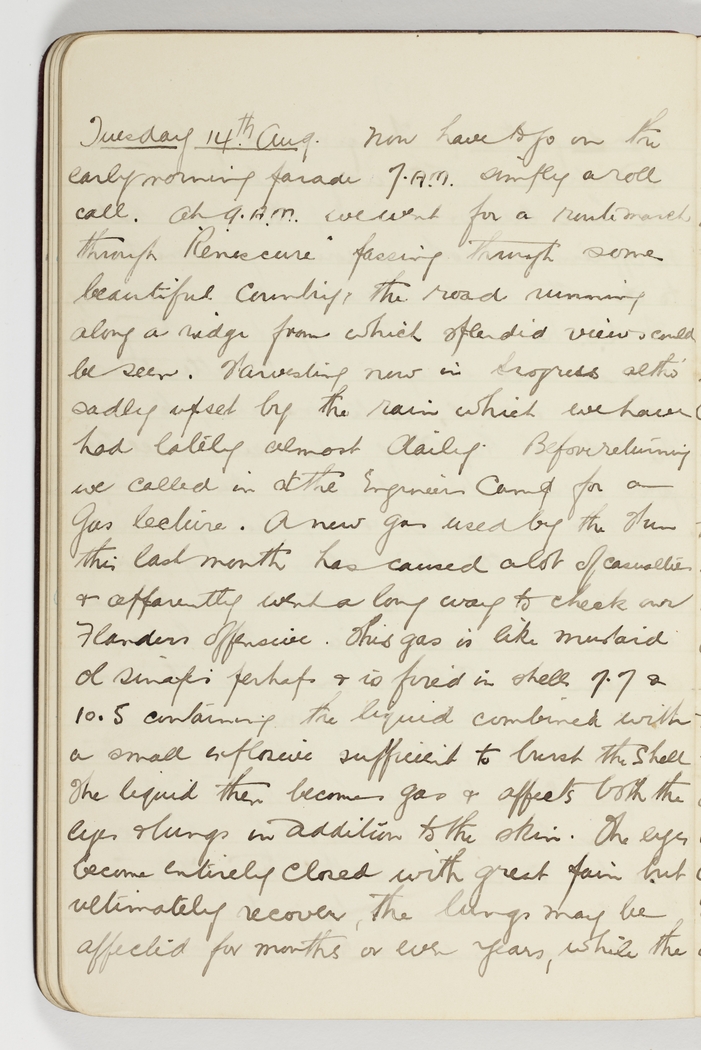 Tuesday 14th Aug. Now have to go on the
early morning parade 7.A.M. simply a roll
call. At 9.A.M. we went for a route march
through "Renescure" passing through some
beautiful country, the road running
along a ridge from which splendid views could
be seen. Harvesting now in progress altho'
sadly upset by the rain which we have
had lately almost daily. Before returning
we called in at the Engineers Camp for a
Gas lecture. A new gas used by the Hun
this last month has caused a lot of casualties
& apparently went a long way to check our
Flanders Offensive. This gas is like mustard
Ol sinapi perhaps & is fired in shells 7.7 &
10.5 containing the liquid combined with
a small explosive sufficient to burst the Shell
The liquid then becomes gas & affects both the
eyes & lungs in addition to the skin. The eyes
become entirely closed with great pain but
ultimately recover, the lungs may be
affected for months or even years, while the